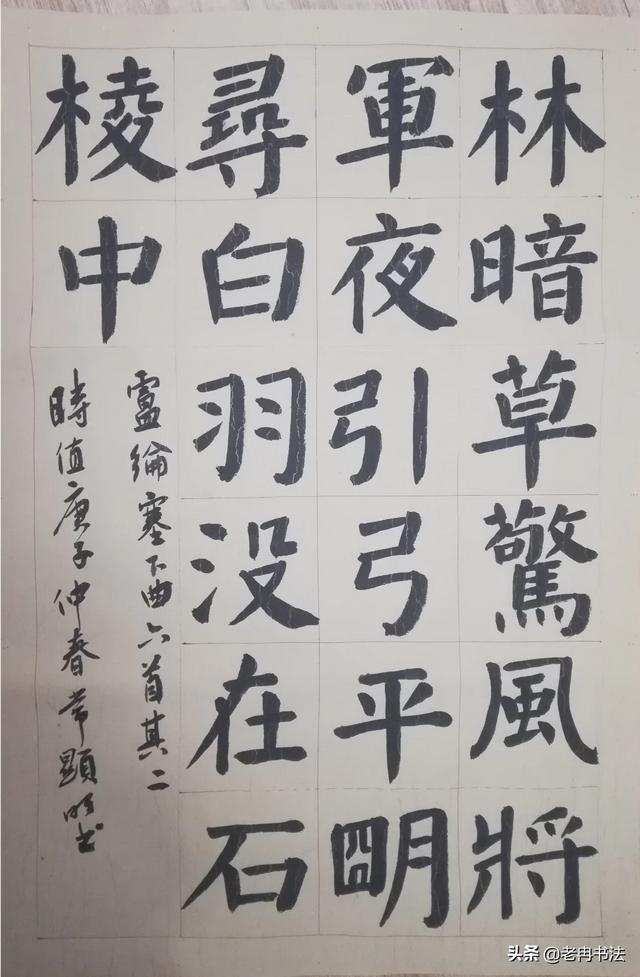 林暗草驚風將
軍夜引弓平朙
尋白羽没在石
棱中
盧綸塞下曲六首其二
時值庚子仲春常顯明书
头条 @老冉书法